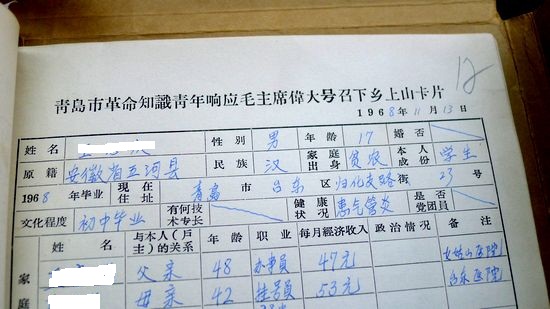 12
青島市革命知識青年响应毛主席偉大号召下乡上山卡片
1968年11月13日
姓名 性别 男 年龄 17 婚否
原籍 安徽省五河县 民族 汉 家庭出身 贫农 本人成份 学生
1968年毕业 现在住址 青島市 台东区 归化支路街 23号
文化程度 初中毕业 有何技术专长 健康状况 患气管炎 是否党团員
家庭 姓名 与本人(戶主)的关系 年龄 职业 每月經济收入 政治情况 备注
父亲 48 办事員 47元 医院
母亲 42 挂号員 53元 台东医院